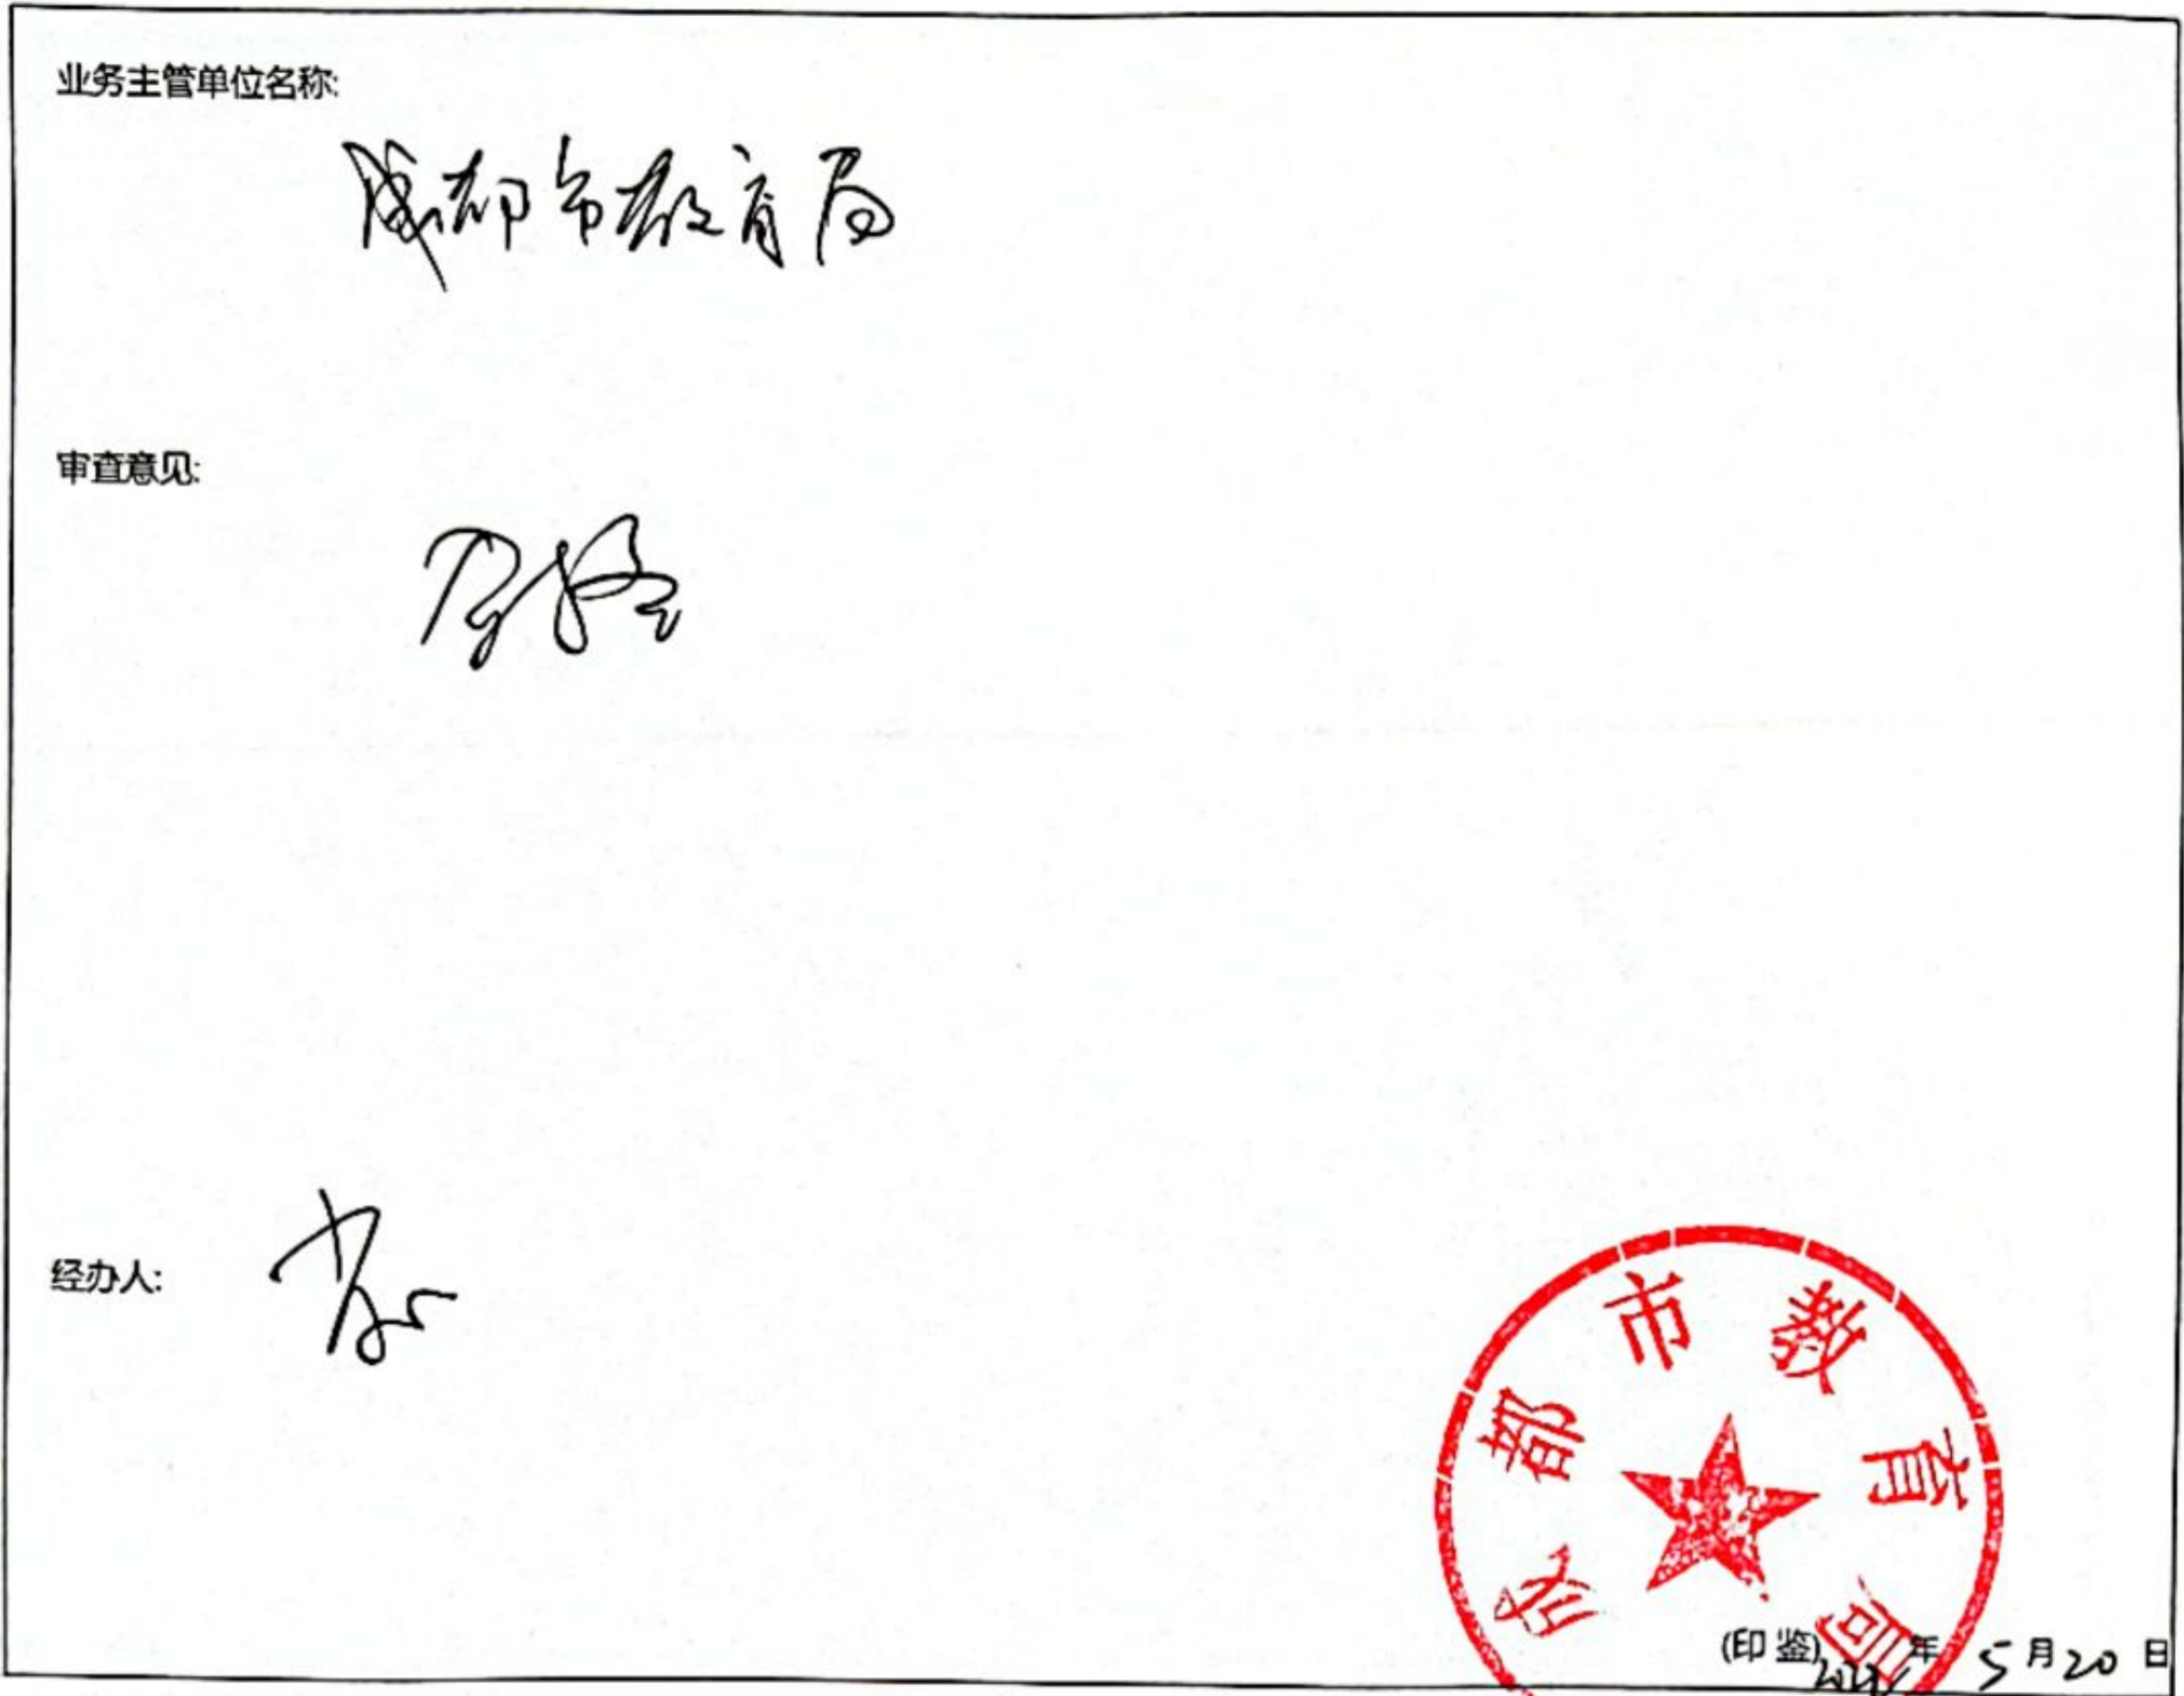 业务主管单位名称:
成都市教育局
审查意见:
合格
经办人:
成都市教育局
(印鉴) 年 5 月 20 日